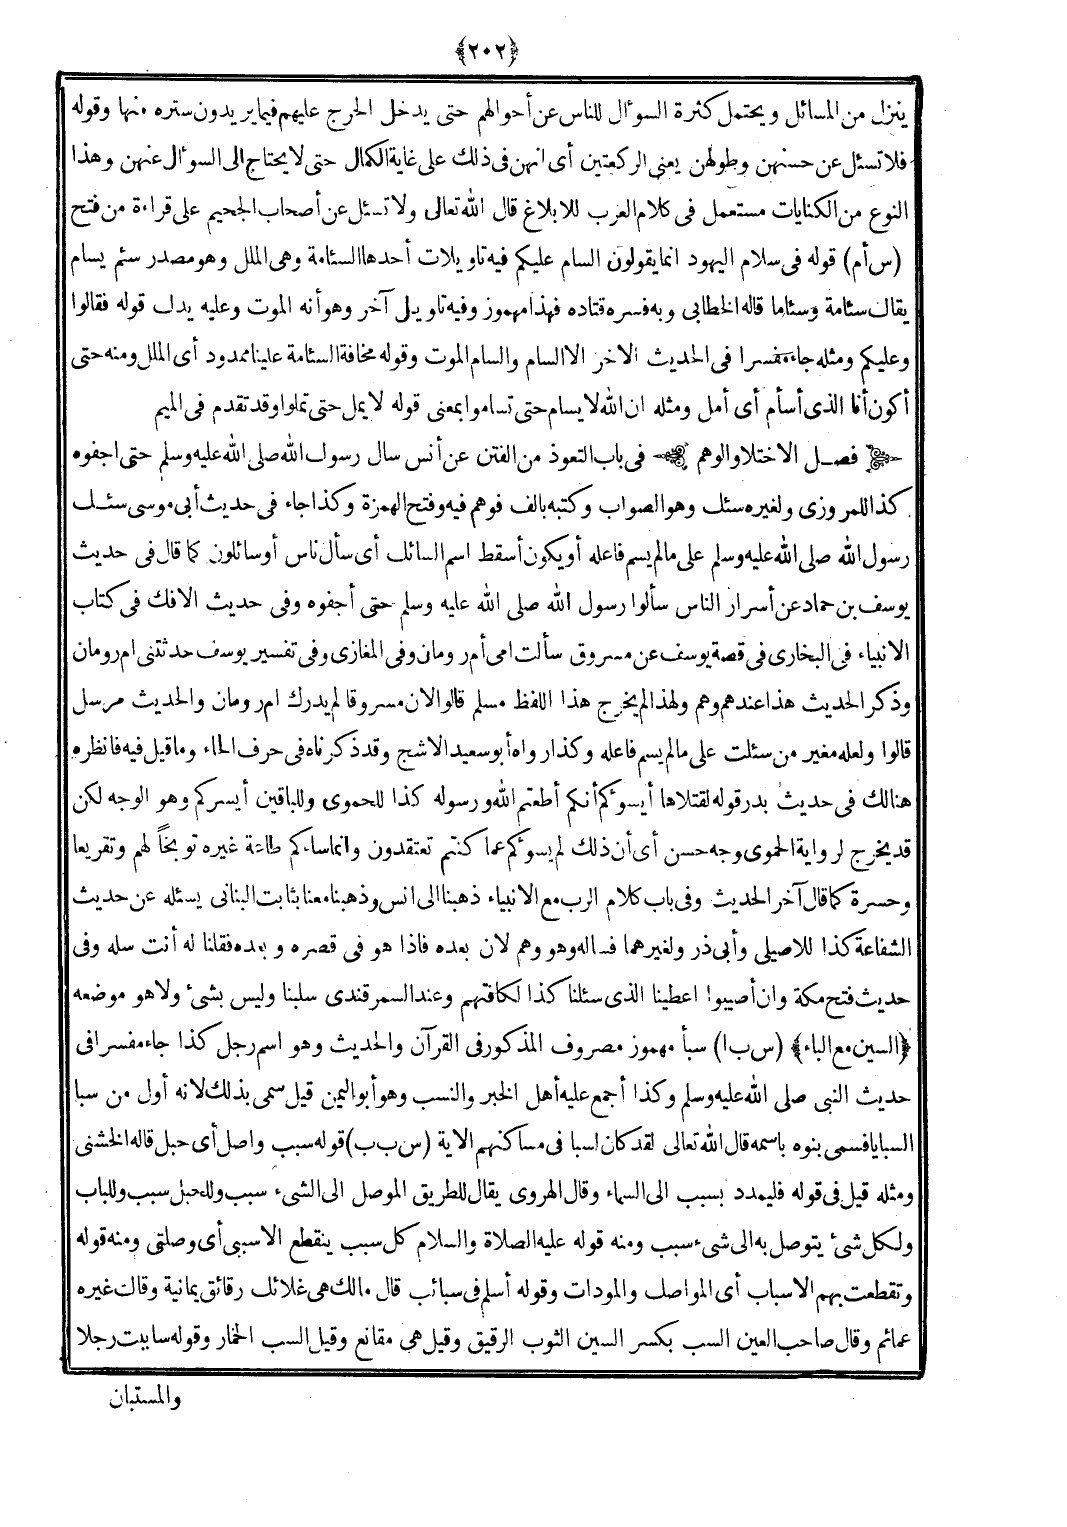 ﴿٢٠٢﴾
ينزل من المسائل ويحتمل كثرة السوٴال للناس عن أحوالهم حتى يدخل الحرج عليهم فيما يريدون ستره منها وقوله
فلا تسئل عن حسنهن وطولهن يعنى الركعتين أى انهن فى ذلك على غاية الكمال حتى لا يحتاج الى السوٴال عنهن وهذا
النوع من الكنايات مستعمل فى كلام العرب للابلاغ قال الله تعالى ولا تسئل عن أصحاب الجحيم على قراءة من فتح
(س أم) قوله فى سلام اليهود انما يقولون السام عليكم فيه تاويلات أحدها السئامة وهى الملل وهو مصدر سئم يسام
يقال سئامة وسئاما قاله الخطابى وبه فسره قتاده فهذا مهموز وفيه تاويل آخر وهو أنه الموت وعليه يدل قوله فقالوا
وعليكم ومثله جاء مفسرا فى الحديث الاخر الا السام والسام الموت وقوله مخافة السئامة علينا ممدود أى الملل ومنه حتى
أكون أنا الذى أسأم أى أمل ومثله ان الله لا يسام حتى تساموا بمعنى قوله لا يمل حتى تملوا وقد تقدم فى الميم
فصل الاختلاف والوهم فى باب التعوذ من الفتن عن أنس سال رسول الله صلى الله عليه وسلم حتى اجفوه
كذا للمروزى ولغيره سئل وهو الصواب وكتبه بالف فوهم فيه وفتح الهمزة وكذا جاء فى حديث أبى موسى سئل
رسول الله صلى الله عليه وسلم على مالم يسم فاعله أو يكون أسقط اسم السائل أى سأل ناس أو سائلون كما قال فى حديث
يوسف بن حماد عن أسرار الناس سألوا رسول الله صلى الله عليه وسلم حتى أجفوه وفى حديث الافك فى كتاب
الانبياء فى البخارى فى قصة يوسف عن مسروق سألت امى أم رومان وفى المغازى وفى تفسير يوسف حدثتنى ام رومان
وذكر الحديث هذا عندهم وهم ولهذا لم يخرج هذا اللفظ مسلم قالوا لان مسروقا لم يدرك ام رومان والحديث مرسل
قالوا ولعله مغير من سئلت على مالم يسم فاعله وكذا رواه أبو سعيد الاشج وقد ذكرناه فى حرف الحاء وما قيل فيه فانظره
هنالك فى حديث بدر قوله لقتلاها أيسوٴكم أنكم أطعتم الله ورسوله كذا للحموى وللباقين أيسركم وهو الوجه لكن
قد يخرج لرواية الحموى وجه حسن أى أن ذلك لم يسوٴكم عما كنتم تعتقدون وانما ساءكم طاعة غيره توبخاً لهم وتقريعا
وحسرة كما قال آخر الحديث وفى باب كلام الرب مع الانبياء ذهبنا الى انس وذهبنا معنا بثابت البنانى يسئله عن حديث
الشفاعة كذا للاصيلى وأبى ذر ولغيرهما فساله وهو وهم لان بعده فاذا هو فى قصره وبعده فقلنا له أنت سله وفى
حديث فتح مكة وان أصيبوا اعطينا الذى سئلنا كذا لكافتهم وعند السمرقندى سلبنا وليس بشئ ولا هو موضعه
﴿السين مع الباء﴾ (س ب ا) سبأ مهموز مصروف المذكور فى القرآن والحديث وهو اسم رجل كذا جاء مفسرا فى
حديث النبى صلى الله عليه وسلم وكذا أجمع عليه أهل الخبر والنسب وهو أبو اليمن قيل سمى بذلك لانه أول من سبا
السبايا فسمى بنوه باسمه قال الله تعالى لقد كان لسبا فى مساكنهم الاية (س ب ب) قوله سبب واصل أى حبل قاله الخشنى
ومثله قيل فى قوله فليمدد بسبب الى السماء وقال الهروى يقال للطريق الموصل الى الشىء سبب وللحبل سبب وللباب
ولكل شئ يتوصل به الى شىء سبب ومنه قوله عليه الصلاة والسلام كل سبب ينقطع الا سببى أى وصلتى ومنه قوله
وتقطعت بهم الاسباب أى المواصل والمودات وقوله أسلم فى سبائب قال مالك هى غلائل رقائق يمانية وقال غيره
عمائم وقال صاحب العين السب بكسر السين الثوب الرقيق وقيل هى مقانع وقيل السب الخمار وقوله ساببت رجلا
والمستبان